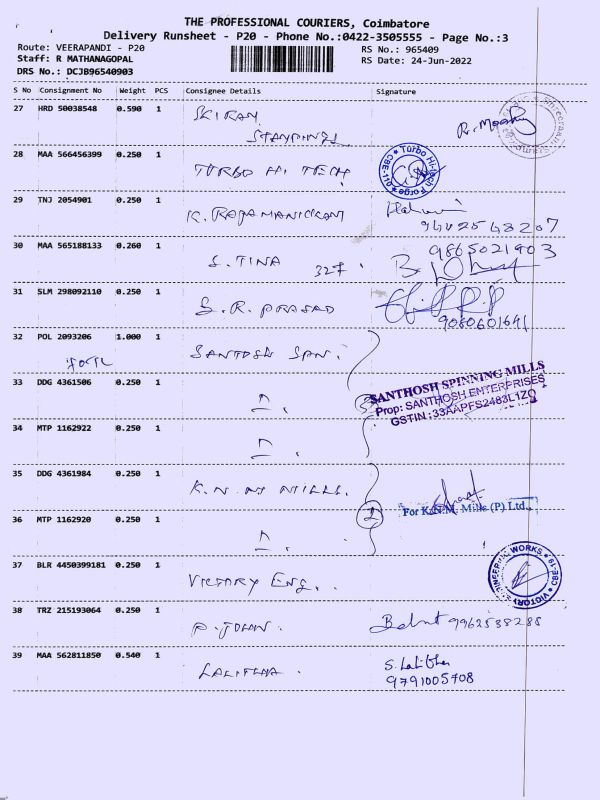 THE PROFESSIONAL COURIERS, Coimbatore
Delivery Runsheet - P20 - Phone No.:0422-3505555 - Page No.:3
Route: VEERAPANDI - P20
RS No.: 965409
Staff: R MATHANAGOPAL
RS Date: 24-Jun-2022
DRS No.: DCJB96540903
S No Consignment No Weight PCS Consignee Details Signature
27 HRD 50038548 0.590 1 SKIRAN
STAMPINGS
28 MAA 566456399 0.250 1 TURBO HI TECH
Turbo Hi-Tech Forge
29 TNJ 2054901 0.250 1 K. RAJAMANICKAM
9442548207
30 MAA 565188133 0.260 1 S. TINA 327
9865021903
31 SLM 298092110 0.250 1 S. R. PRASAD
9080601641
32 POL 2093206 1.000 1 SANTOSH SPN.
33 DDG 4361506 0.250 1
3
SANTHOSH SPINNING MILLS
Prop: SANTHOSH ENTERPRISES
GSTIN :33AAPFS2483L1ZQ
34 MTP 1162922 0.250 1
35 DDG 4361984 0.250 1 K.N.M MILLS.
36 MTP 1162920 0.250 1
2
For K.N.M. Mills (P) Ltd.,
37 BLR 4450399181 0.250 1 VICTORY ENG.
38 TRZ 215193064 0.250 1 P. JOHN.
9962538288
39 MAA 562811850 0.540 1 LALITHA.
S. Lalitha
9791005708